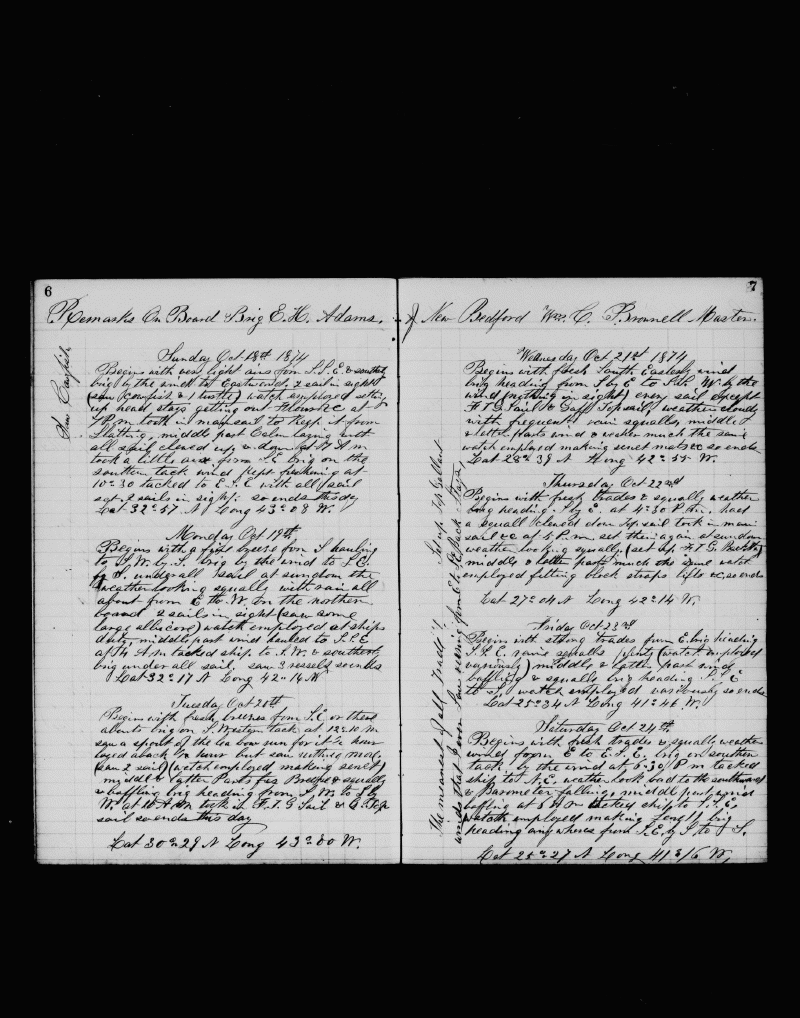 6
Remarks On Board Brig E. H. Adams.
Sunday Oct 18th 1874
Begins with very light airs from S.S.E. & southerly
brig by the wind to Eastward, 2 sail in sight
(saw Cowfish & 1 turtle) watch employed setting
up head stays getting out at
7 P.m. took in mainsail to keep it from
Slatting, middle part Calm laying with
all sail clewed up & down at 7 A.m
took a little air from S.E. brig on the
southern tack wind kept freshening at
10-30 tacked to E.S.E. with all sail
set 2 sails in sight: so ends this day
Lat 32-57 N Long 43-08 W.
Monday Oct 19th
Begins with a fresh breeze from S hauling
to S.W. by S. brig by the wind to S.E.
by S. under all sail at sundown the
weather looking squally with rain all
about from E to W. on the northern
board 2 sails in sight (saw some
large albicore) watch employed at ships
duty, middle part wind hauled to S.S.E
at 4 A.m tacked ship to S.W. & southerly
brig under all sail, saw 3 vessels so ends
Lat 32-17 N Long 42-16 W
Tuesday Oct 20th
Begins with fresh breezes from S.E. or there
abouts brig on S. Westerly tack at 12-10 m
saw a spout off the lea bow run for it 1/2 hour
luffed aback 1/2 hour but saw nothing more
(saw 2 sail) (watch employed making senit)
middle & latter Parts fresh Breeze & squally
& baffling brig heading from S.W. to S by
W. at 10 A.m took in F.T.G Sail &
sail so ends this day
Lat 30-29 N Long 43-00 W.
7
of New Bedford Wm. C. Brownell Master.
Wednesday Oct 21st 1874
Begins with fresh South Easterly wind
brig heading from S by E to S.S. W. by the
wind (nothing in sight) every sail except
F.T.G. Sail & Gaff Topsail, weather cloudy
with frequent rain squalls, middle
& latter parts wind & weather much the same
watch employed making senet mats &c so ends
Lat 28-38 N Long 42-55 W.
Thursday Oct 22nd
Begins with fresh trades & squally weather
brig heading S by E. at 4-30 P.m. had
a squall clewed down Top sail took in main
sail &c at 5 P.m set them again at sundown
weather looking squally (set up F.T.G. Backstays)
middle & latter parts much the same watch
employed fitting block straps lifts &c, so ends
Lat 27-04 N Long 42-14 W.
Friday Oct 23rd
Begins with strong trades from E. brig heading
S.S.E. rain squalls plenty (watch employed
variously) middle & latter part wind
baffling & squally brig heading S. E
to S. watch employed variously so ends
Lat 25-34 N Long 41-46 W.
Saturday Oct 24th
Begins with fresh trades & squally weather
wind from E to E.S.E. brig on southern
tack by the wind at 5-30 P.m tacked
ship to N.E. weather look bad to the southward
& Barometer falling, middle part wind
bafling at 5 A m tacked ship to S.S.E.
watch employed making brig
heading anywheres from S.E. by S. to S.
Lat 25-27 N Long 41-16 W,